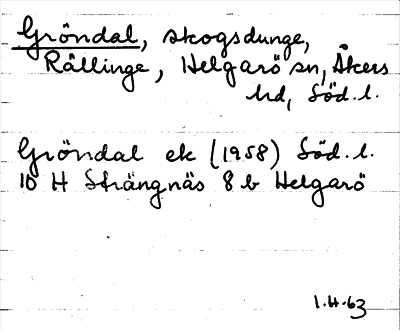 Gröndal, skogsdunge,
Rällinge, Helgarö sn, Åkers
hd, Söd. l.
Gröndal ek (1958) Söd. l.
10 H Strängnäs 8 b Helgarö
1.H.63